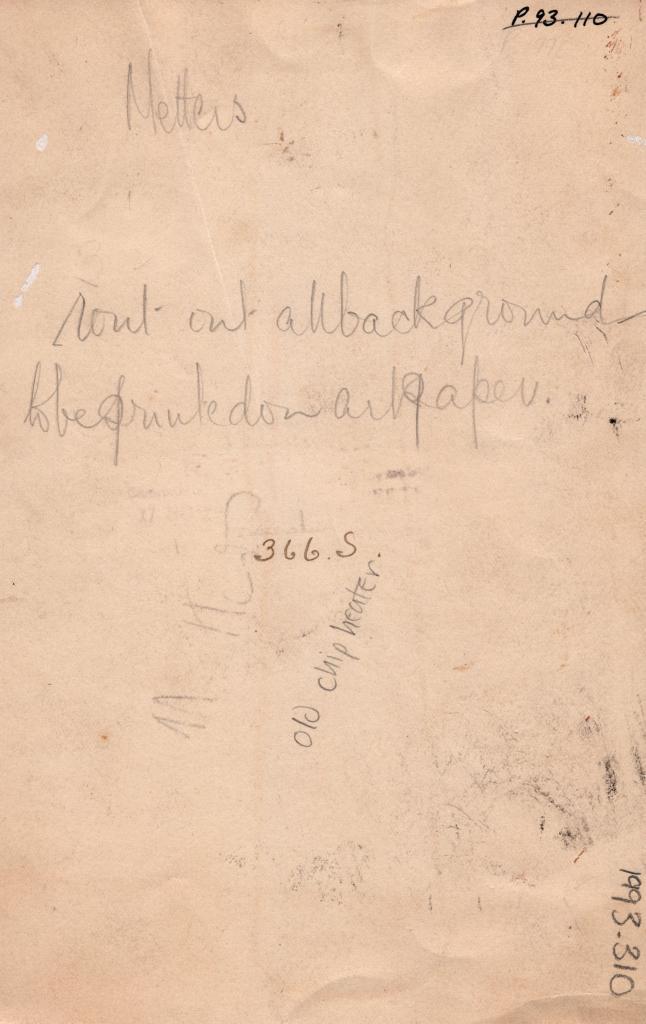 P. 93. 110
Metters
rout out all background
to be printed on art paper.
366. S.
Old chip heater
193.310